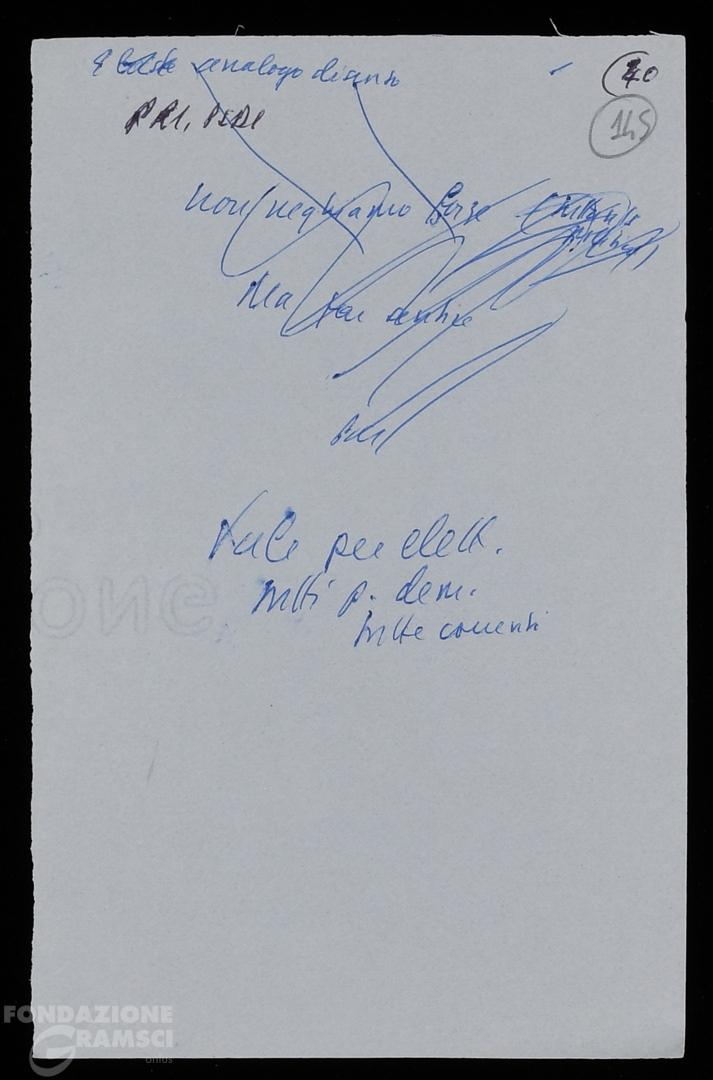 E analogo discorso
40
PRI, PSDI
145
non neghiamo forse
Ma far sentire
Vale per elett.
tutti p. dem.
tutte correnti
one
FONDAZIONE
GRAMSCI
onlus